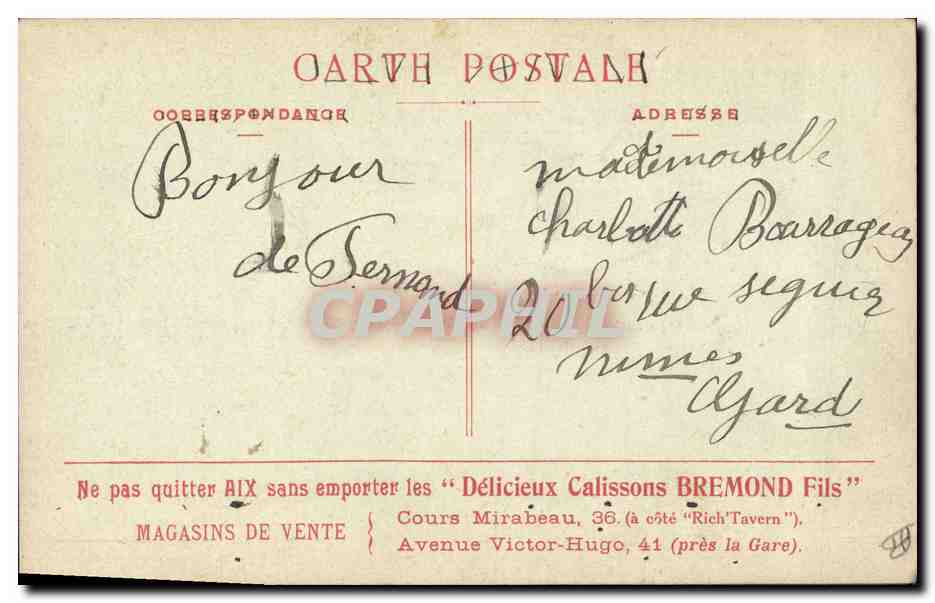 CARTE POSTALE
CORRESPONDANCE
ADRESSE
Bonjour
de Fernand
mademoiselle
charlotte
20 bis rue seguier
nimes
Gard
CPAPHIL
Ne pas quitter AIX sans emporter les "Délicieux Calissons BREMOND Fils"
MAGASINS DE VENTE
Cours Mirabeau, 36. (à côté "Rich'Tavern").
Avenue Victor-Hugo, 41 (près la Gare).